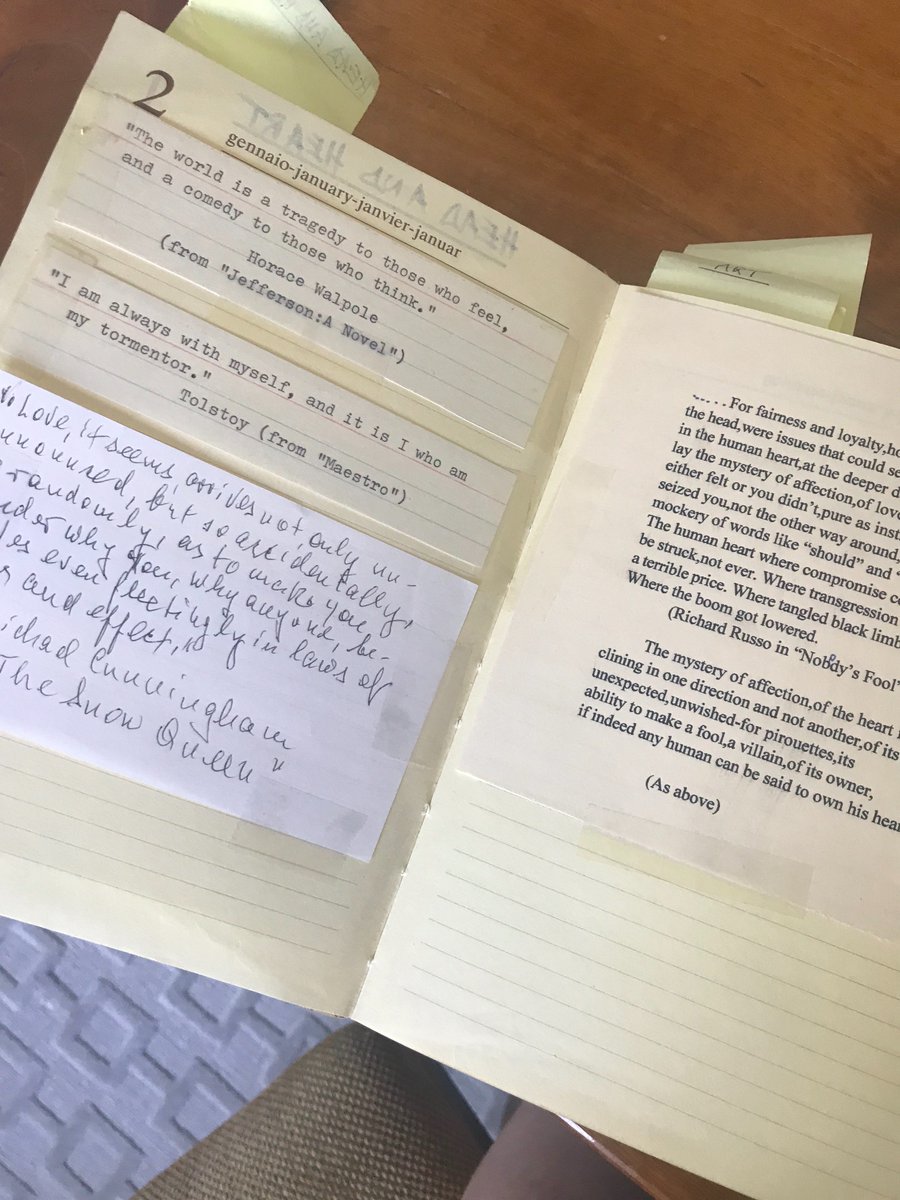 2
HEAD AND HEART
gennaio-january-janvier-januar
"The world is a tragedy to those who feel,
and a comedy to those who think."
Horace Walpole
(from "Jefferson:A Novel")
"I am always with myself, and it is I who am
my tormentor."
Tolstoy (from "Maestro")
Love, it seems, arrives not only un-
nnounced, but so accidentally,
randomly, as to make you
nder why you, why anyone, be-
es even fleetingly in laws of
and effect,
ichael Cunningham
The Snow Queen"
ART
.....For fairness and loyalty,ho
the head,were issues that could se
in the human heart,at the deeper d
lay the mystery of affection,of lov
either felt or you didn't,pure as inst
seized you,not the other way around,
mockery of words like "should" and "
The human heart where compromise c
be struck,not ever. Where transgression
a terrible price. Where tangled black limb
Where the boom got lowered.
(Richard Russo in "Nobody's Fool"
The mystery of affection,of the heart i
clining in one direction and not another,of its
unexpected,unwished-for pirouettes,its
ability to make a fool,a villain,of its owner,
if indeed any human can be said to own his hear
(As above)